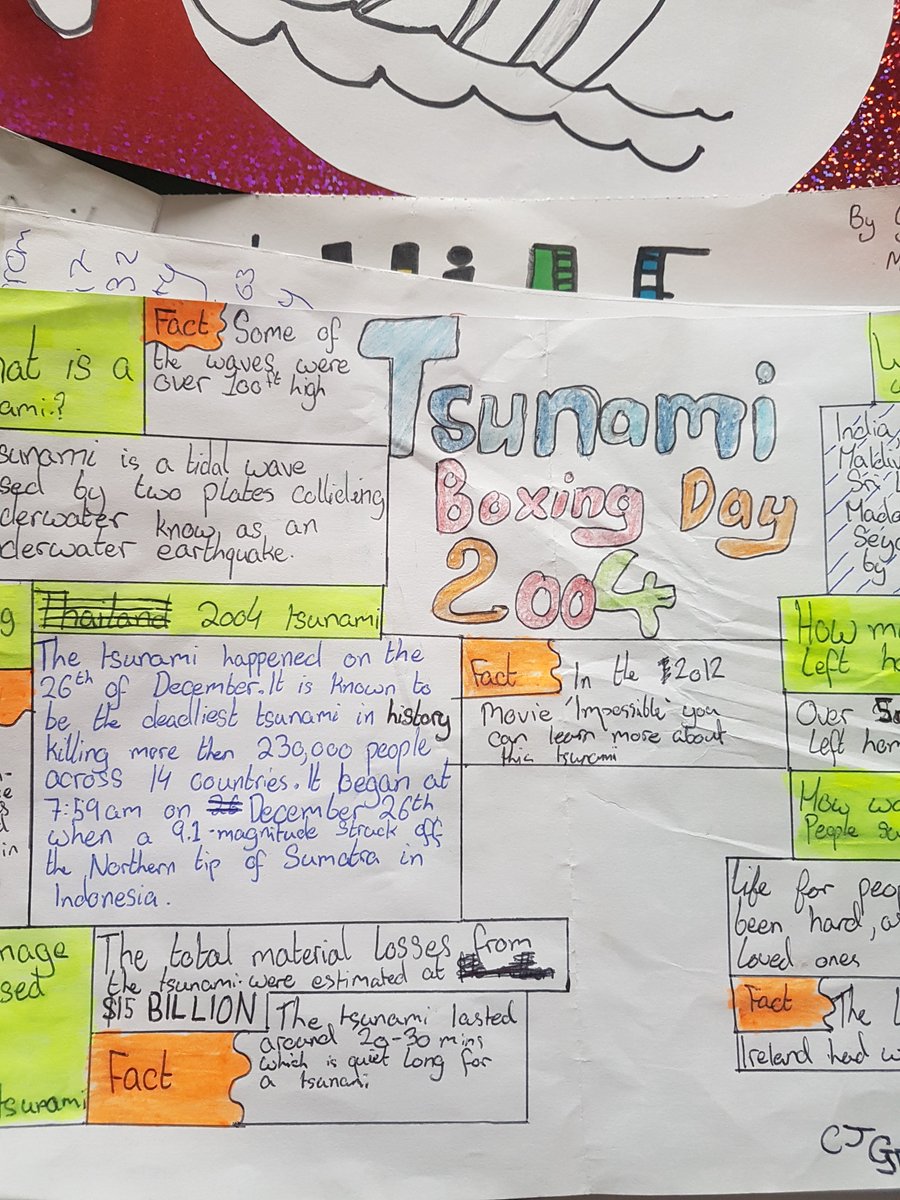 By
Fact Some of
the waves were
over 100ft high
hat is a
ami?
sunami is a tidal wave
sed by two plates collieling
derwater know as an
derwater earthquake.
Tsunami
Boxing Day
2004
Thailand 2004 tsunami
The tsunami happened on the
26th of December. It is known to
be the deadliest tsunami in history
killing more then 230,000 people
across 14 countries. It began at
7:59am on 26 December 26th
when a 9.1-magnitude struck off
the Northern tip of Sumatra in
Indonesia.
Fact In the 2012
Movie 'Impossible' you
can learn more about
this tsunami
India,
Maldiv
Sri L
Mada
Seyc
by
How m
left ho
Over
left hom
How wa
People su
life for peop
been hard, as
loved ones
Fact The
Ireland had w
mage
sed
tsunami
The total material losses from
the tsunami were estimated at
$15 BILLION
Fact
The tsunami lasted
around 20-30 mins
which is quiet long for
a tsunami
CJG